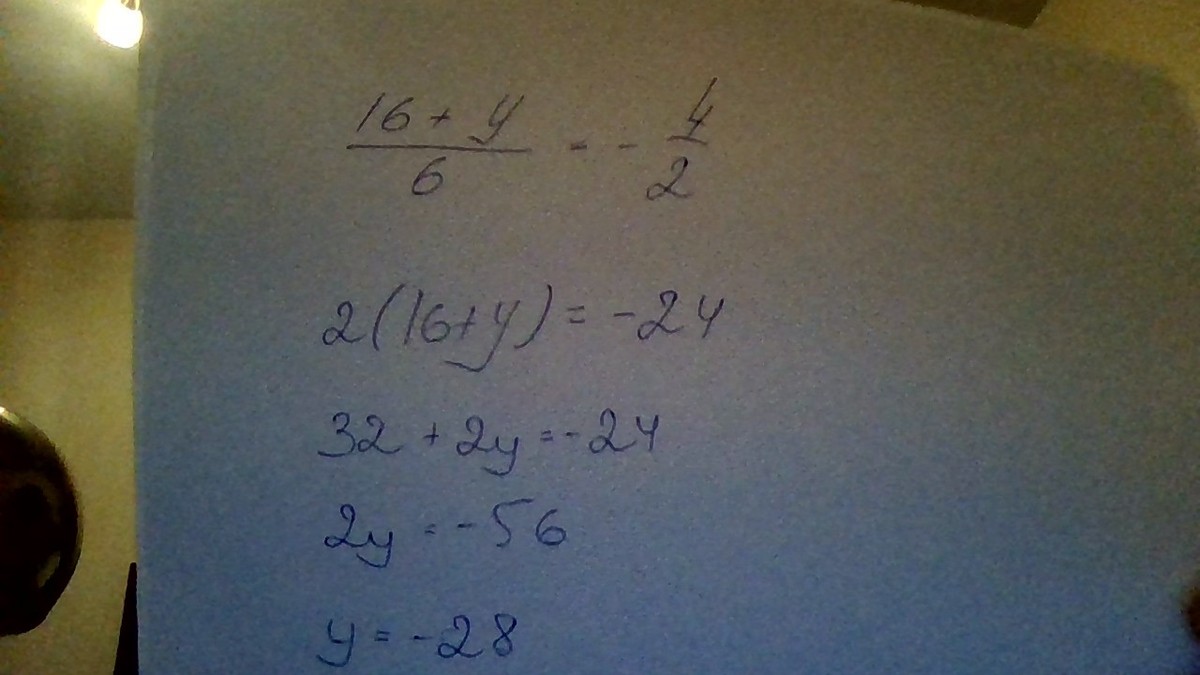 16 + y / 6 = - 4 / 2
2(16+y) = -24
32 + 2y = -24
2y = -56
y = -28